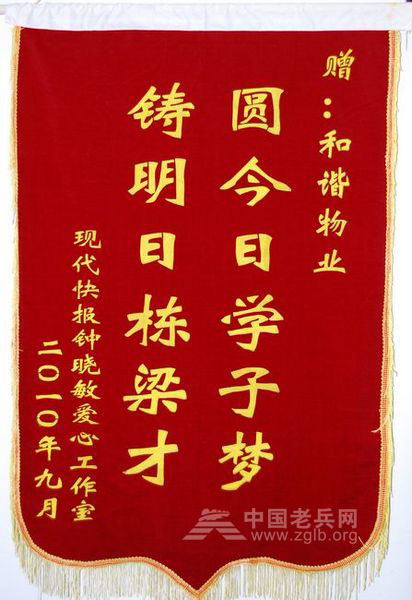 赠：和谐物业
圆今日学子梦
铸明日栋梁才
现代快报钟晓敏爱心工作室
二〇一〇年九月
中国老兵网
www.zglb.org